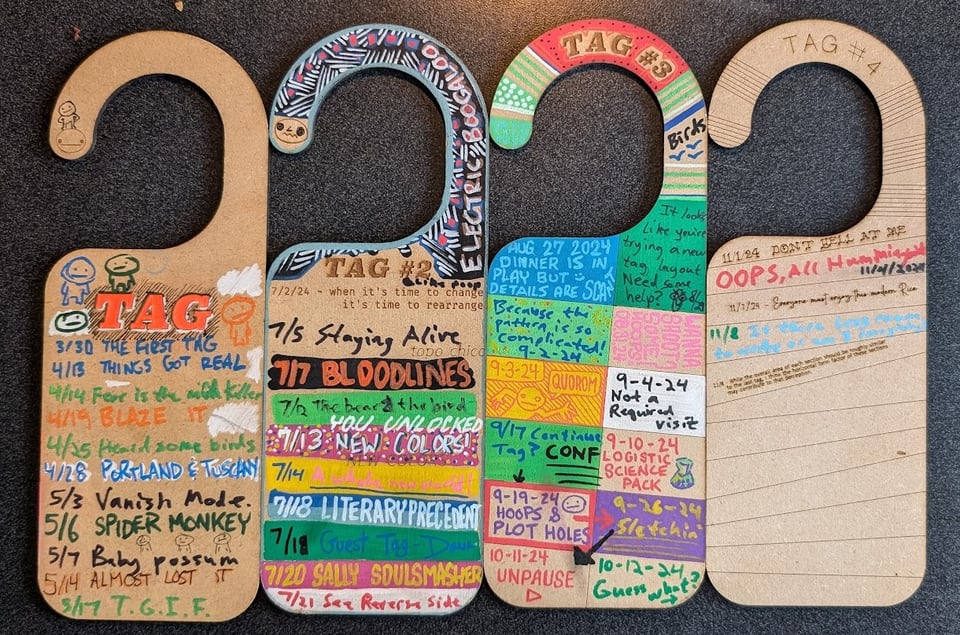 TAG
3/30 THE FIRST TAG
4/13 THINGS GOT REAL
4/14 Fear is the milk killer
4/19 BLAZE IT
4/25 Heard some birds
4/28 PORTLAND & TUSCANY
5/3 Vanish Mode.
5/6 SPIDER MONKEY
5/7 Baby possum
5/14 ALMOST LOST IT
5/17 T.G.I.F.
ELECTRIC BOOGALOO
TAG #2
7/2/24 - when it's time to change
it's time to rearrange
7/5 Staying Alive
topo chico
7/7 BLOODLINES
7/12 The bear & the bird
YOU UNLOCKED
7/13 NEW COLORS!
7/14 A whole new world!
7/18 LITERARY PRECEDENT
7/18 Guest Tag-
7/20 SALLY SOULSMASHER
7/21 See Reverse Side
TAG #3
Birds
It looks
like you're
trying a new
tag layout
Need some
help?
AUG 27 2024
DINNER IS IN
PLAY BUT
DETAILS ARE
Because the
pattern is so
complicated!
9-2-24
9-3-24
QUOROM
9-4-24
Not a
Required
visit
9/17 Continue
Tag?
CONF
9-10-24
LOGISTIC
SCIENCE
PACK
9-19-24
HOOPS &
PLOT HOLES
9-26-24
Sletchin'
10-11-24
UNPAUSE
10-12-24
Guess what?
TAG #4
11/1/24 DON'T YELL AT ME
OOPS, All
11/4/2024
11/7/24 - Everyone must enjoy this modern Rice
11/8
11/11 - While the overall area of each section should be roughly similar
to the last tag, I think the horizontal form factor of these sections
may contribute to that perception.